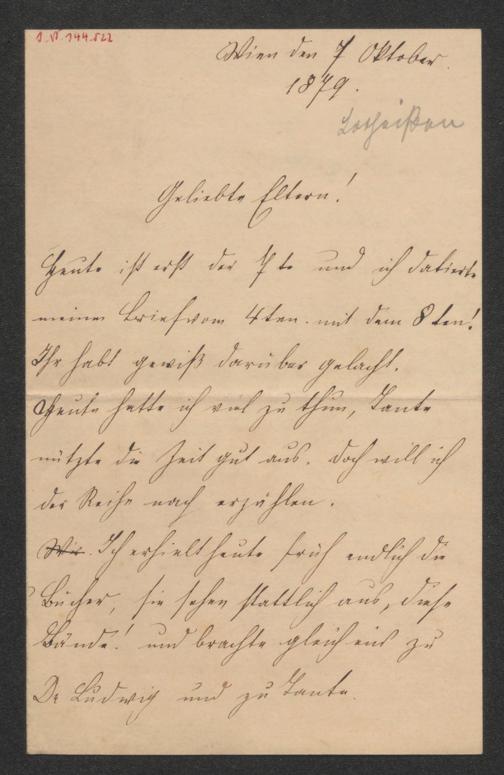 I. N. 144.522
Wien den 7 Oktober.
1879.
Lotheißen
Geliebte Eltern!
Heute ist erst der 7te und ich datierte
meinen Brief vom 4ten mit dem 8ten!
Ihr habt gewiß darüber gelacht.
Heute hatte ich viel zu thun, Tante
nützte die Zeit gut aus. Doch will ich
der Reihe nach erzählen.
Wir. Ich erhielt heute früh endlich die
Bücher, sie sehen stattlich aus, diese
Bände! und brachte gleich eins zu
Dr Ludwig und zu Tante.